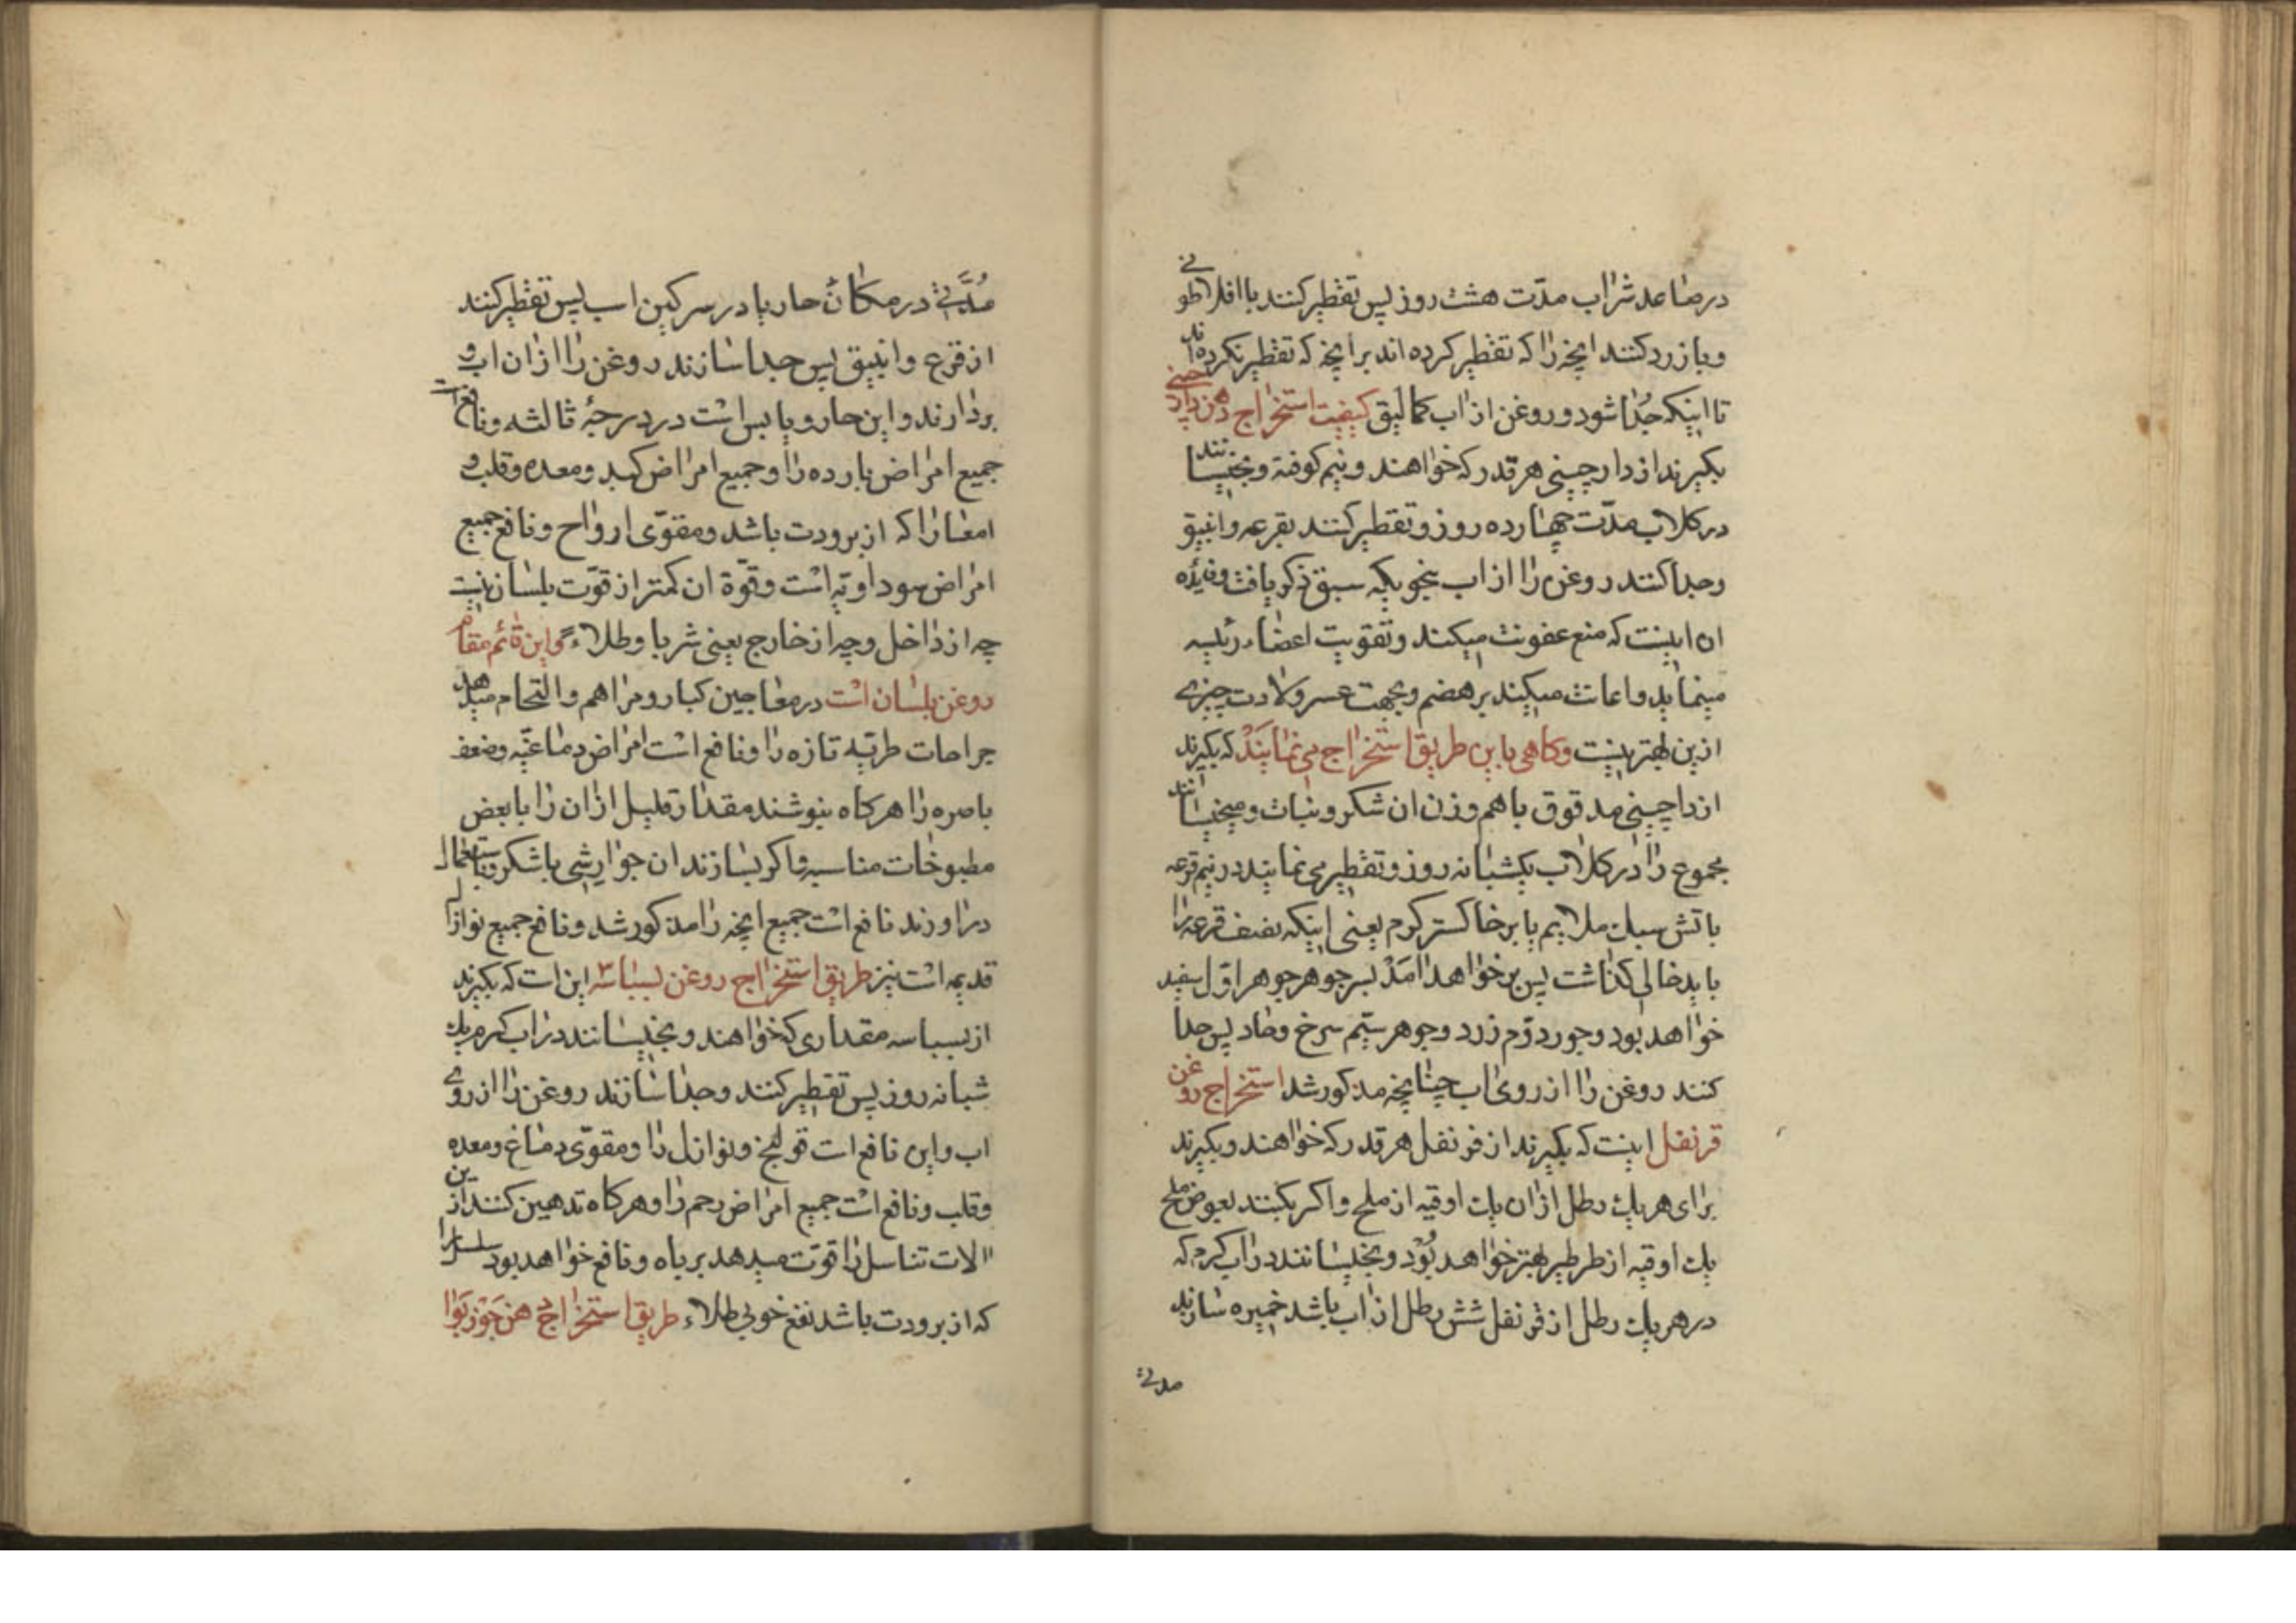 در صاعد شراب مدّت هشت روز پس تقطیر کنند با افلاطونی
و باز رد کنند انچه را که تقطیر کرده اند بر انچه که تقطیر نکرده اند
تا اینکه جُدا شود و روغن از اب کما لیق کیفیت استخراج دهن دارچینی
بکیرند از دارچینی هر قدر که خواهند و نیم کوفته و بخیسانند
در کلاب مدّت چهارده روز و تقطیر کنند بقرعه و انبیق
و جدا کنند روغن را از اب بنحویکه سبق ذکر یافت و فایده
ان اینست که منع عفونت میکند و تقویت اعضاء رئیسه
مینماید و اعانت میکیند بر هضم و بجهت عسر ولادت چیزی
ازین بهتر نیست و کاهی باین طریق استخراج می نمایند که بکیرند
از داچینی مدقوق با هم وزن ان شکر و نبات و میخیسانند
مجموع را در کلاب یکشبانه روز و تقطیر می نمایند در نیم قرعه
باتش سبک ملایم یا بر خاکستر کرم یعنی اینکه نصف قرعه را
باید خالی کذاشت پس بر خواهد امَد بسر جوهر جوهر اوّل سفید
خواهد بود و جورد دوّم زرد و جوهر سیّم سرخ وضاد پس جدا
کنند روغن را از روی اب چنانچه مذکور شد استخراج روغن
قرنفل اینست که بکیرند از قرنفل هر قدر که خواهند و بکیرند
برای هر یک رطل ازان یک اوقیه از ملح و اکر بکنند بعوض ملح
یک اوقیه از طرطیر بهتر خواهد بُوْد و بخیسانند در اب کرم که
در هر یک رطل از قرنفل شش رطل از اب باشد خمیره سازند
مدتی
مُدَّتی در مکان حار یا در سرکین اسب پس تقطیر کنند
از قرع و انبیق پس جدا سازند روغن را ازان اب و
بردارند و این حار و یابس است در درجۀ ثالثه و نافع است
جمیع امراض بارده را و جمیع امراض کبد و معده و قلب و
امعا را که از برودت باشد و مقوّی ارواح و نافع جمیع
امراض سوداویّه است و قوّة ان کمتر از قوّت بلسان نیست
چه از داخل و چه از خارج یعنی شربا و طلاء و این قائم مقام
روغن بلسان است در معاجین کبار و مراهم و التحام میدهد
جراحات طریّه تازه را و نافع است امراض دماغیّه و ضعف
باصره را هر کاه بنوشند مقدار قلیل ازان را با بعض
مطبوخات مناسبه و اکر بسازند ان جوارشی با شکر و باستعمال
دراورند نافع است جمیع انچه را مذکور شد و نافع جمیع نوازل
قدیمه است نیز طریق استخراج روغن بسباسه این است که بکیرند
از بسباسه مقداری که خواهند و بخیسانند در اب کرم یک
شبانه روز پس تقطیر کنند و جدا سازند روغن را از روی
اب و این نافع است قولنج و نوازل را و مقوّی دماغ و معده
و قلب و نافع است جمیع امراض رحم را و هر کاه تدهین کنند ازین
الات تناسل را قوّت میدهد بر باه و نافع خواهد بود
که از برودت باشد نفع خوبی طلاء طریق استخراج دهن جَوز بَوا